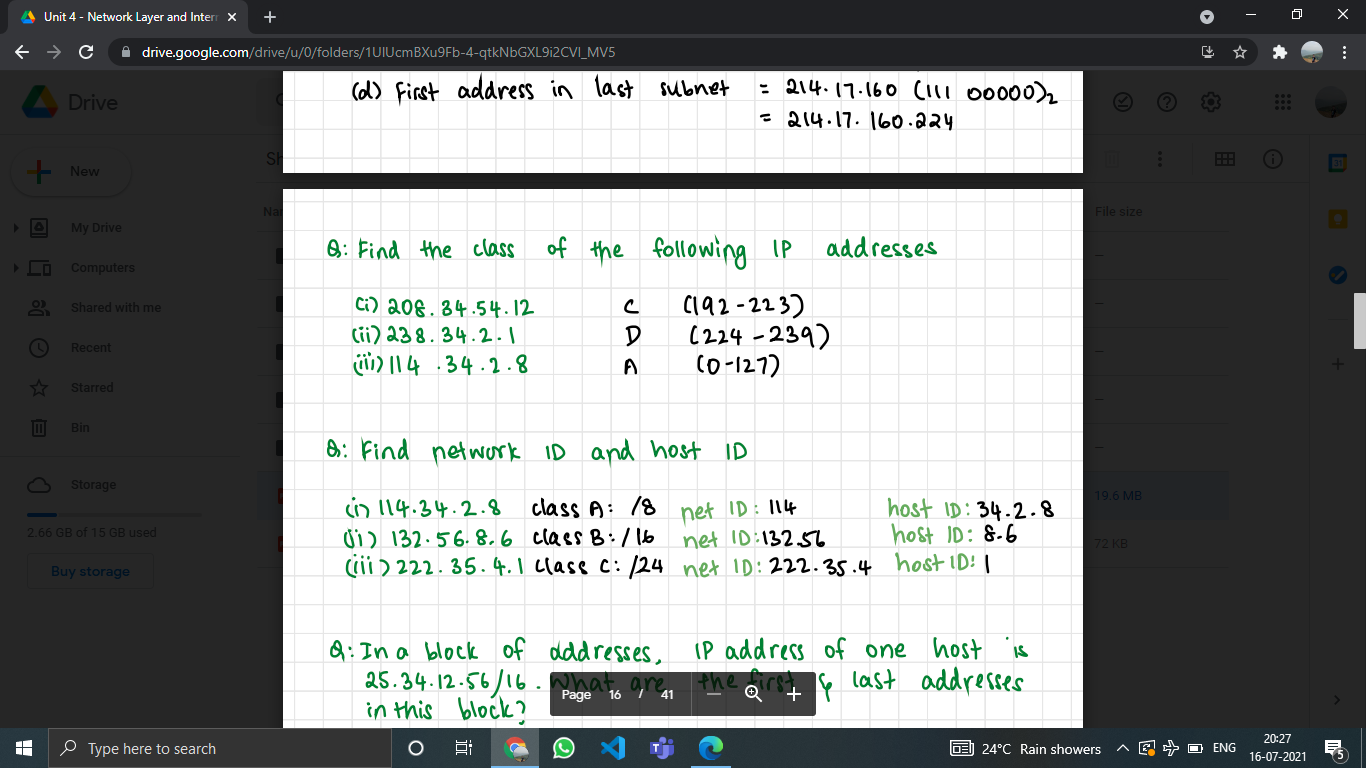 Unit 4 - Network Layer and Intern
drive.google.com/drive/u/0/folders/1UIUcmBXu9Fb-4-qtkNbGXL9i2CVI_MV5
Drive
New
My Drive
Computers
Shared with me
Recent
Starred
Bin
Storage
2.66 GB of 15 GB used
Buy storage
File size
19.6 MB
72 KB
(d) First address in last subnet = 214.17.160 (111 00000)₂
= 214.17.160.224
Q: Find the class of the following IP addresses
(i) 208.34.54.12 C (192-223)
(ii) 238.34.2.1 D (224-239)
(iii) 114.34.2.8 A (0-127)
Q: Find network ID and host ID
(i) 114.34.2.8 class A: /8 net ID: 114 host ID: 34.2.8
(ii) 132.56.8.6 class B: /16 net ID: 132.56 host ID: 8.6
(iii) 222.35.4.1 class C: /24 net ID: 222.35.4 host ID: 1
Q: In a block of addresses, IP address of one host is
25.34.12.56/16. What are the first & last addresses
in this block?
Page 16 / 41
Type here to search
24°C Rain showers
ENG
20:27
16-07-2021
5